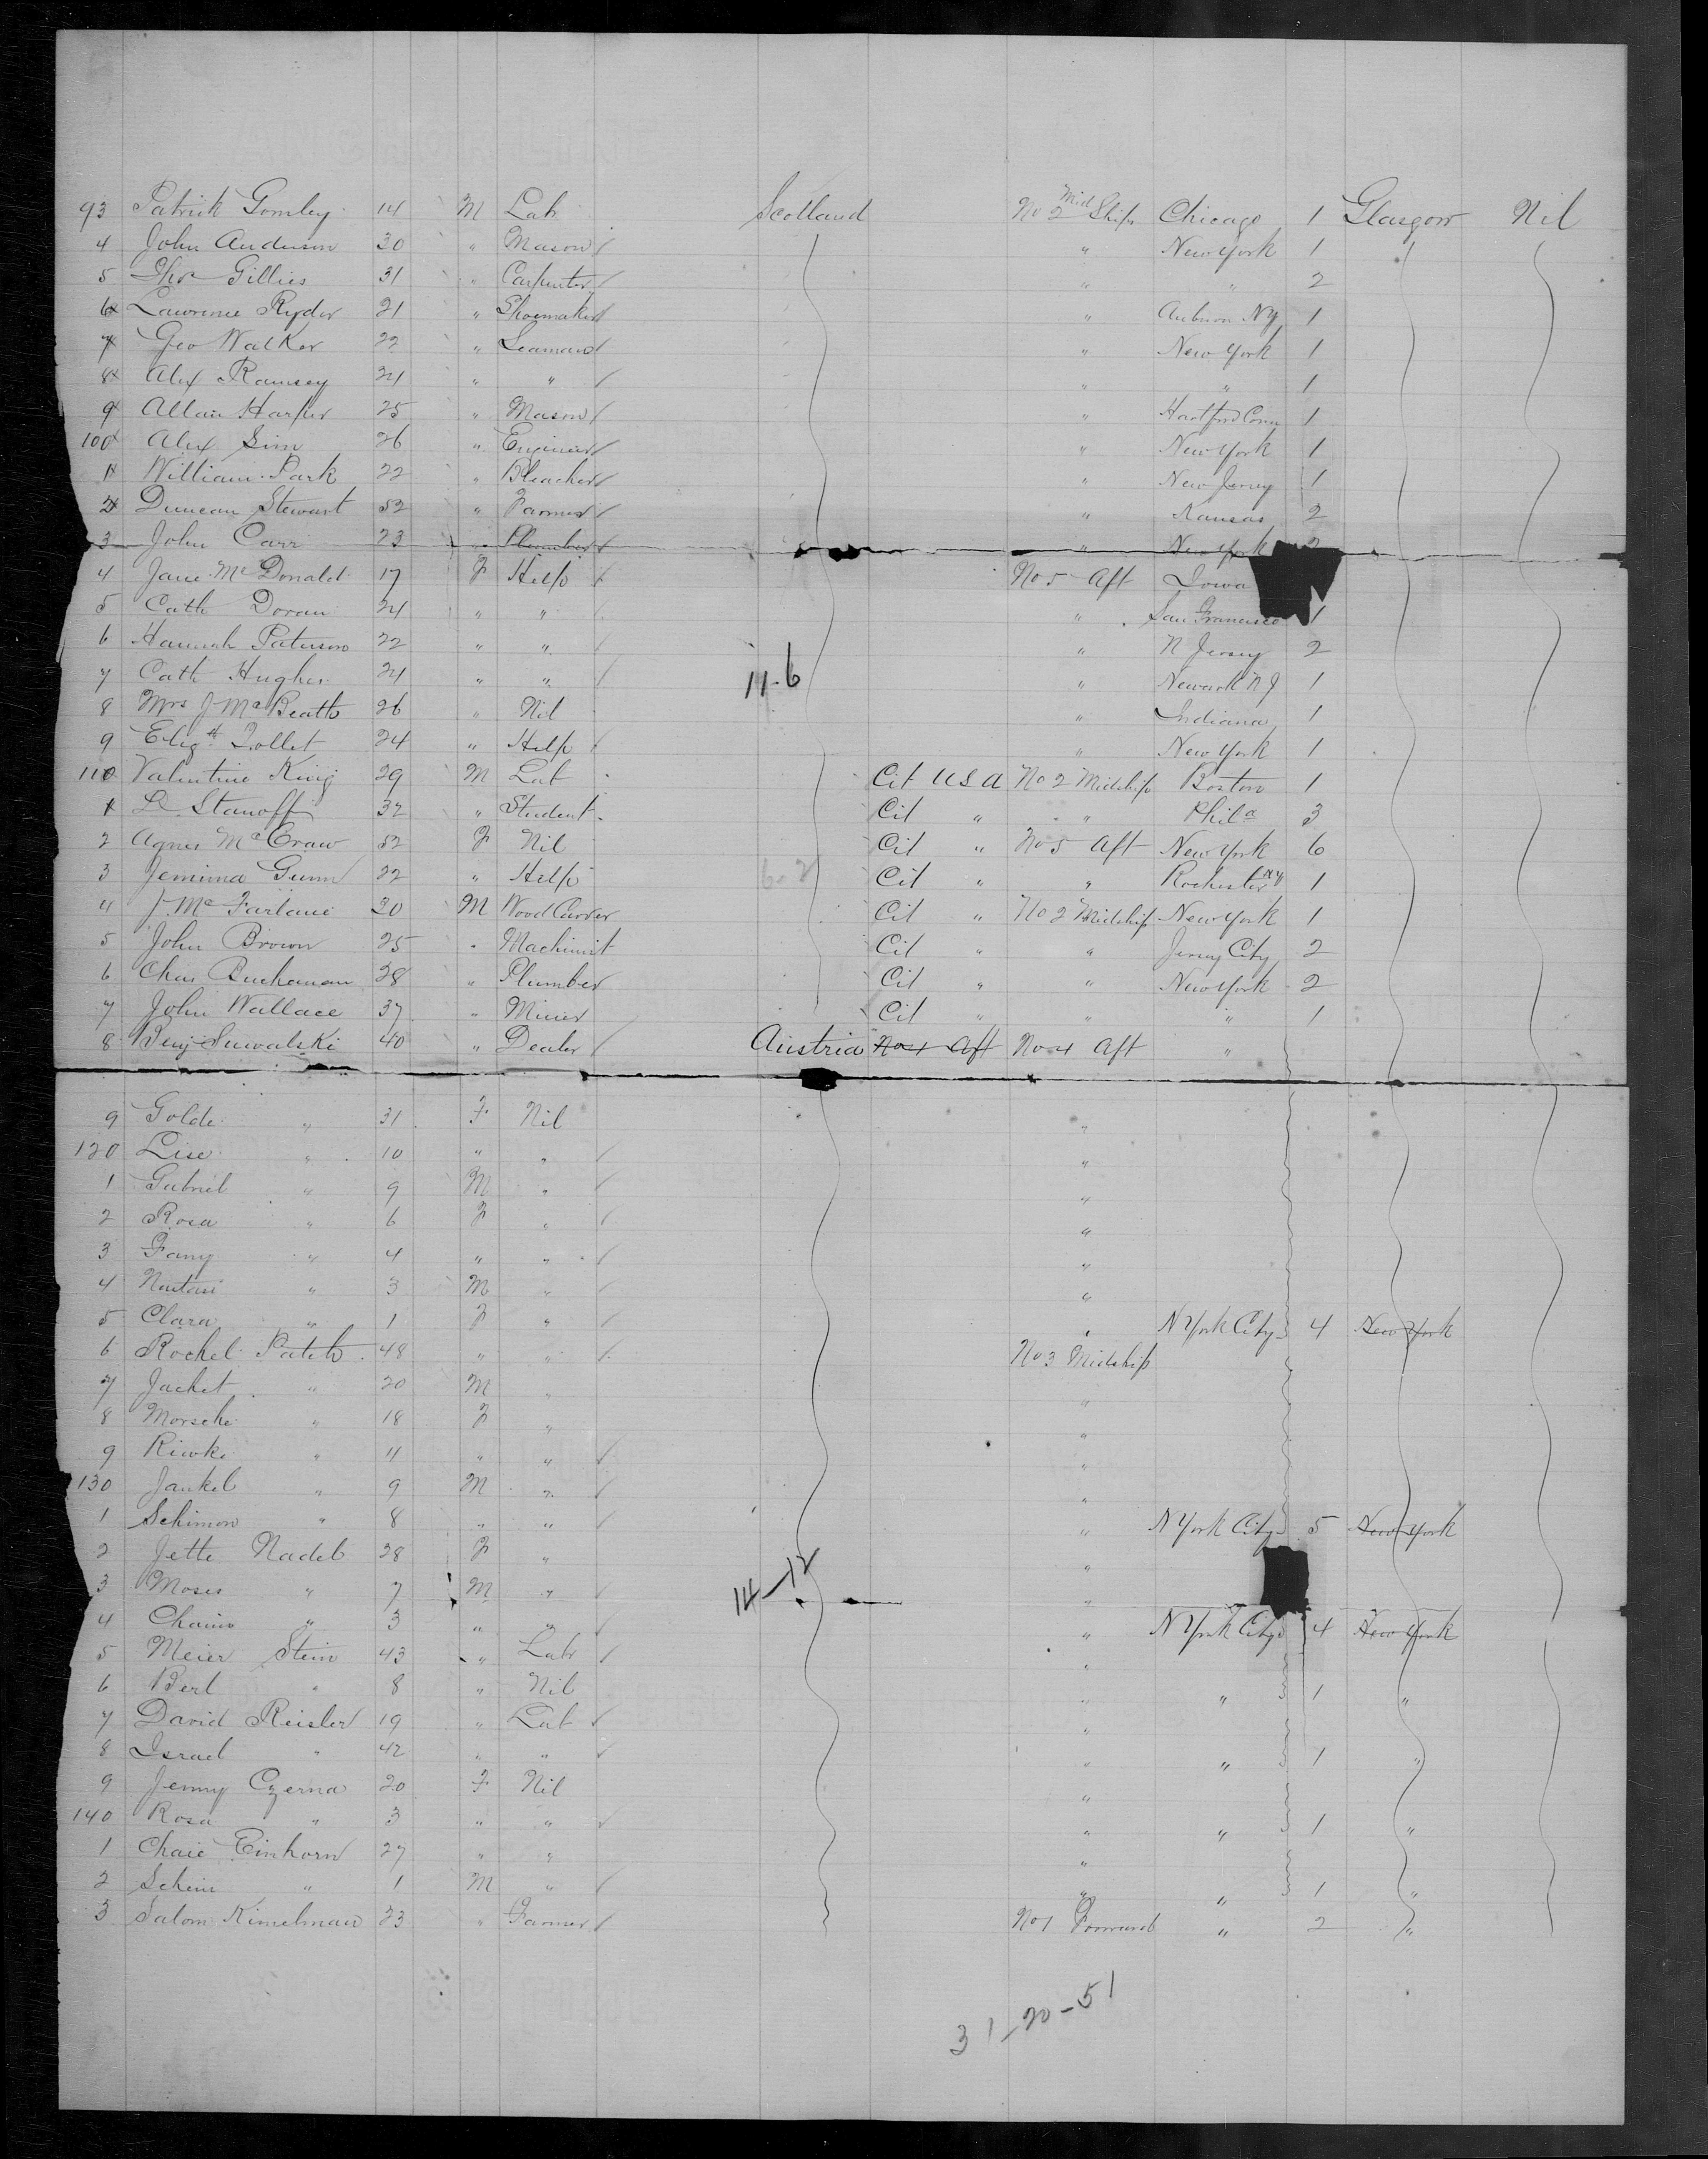 93 Patrick Gomley 14 M Lab Scotland No 2 Mid Ship Chicago 1 Glasgow Nil
4 John Anderson 30 " Mason / " New York 1
5 Thos Gillies 31 " Carpenter / " " 2
6x Lawrence Ryder 21 " Shoemaker / " Auburn NY 1
7x Geo Walker 22 " Seaman / " New York 1
8x Alex Ramsey 24 " " / " " 1
9x Allan Harper 25 " Mason / " Hartford Conn 1
100x Alex Sim 26 " Engineer / " New York 1
1x William Park 22 " Bleacher / " New Jersey 1
2x Duncan Stewart 52 " Farmer / " Kansas 2
3 John Carr 23 " Plumber / " New York 2
4 Jane McDonald 17 F Help / No 5 Aft Iowa
5 Cath Doran 24 " " / " San Francisco 1
6 Hannah Paterson 22 " " / " N Jersey 2
7 Cath Hughes 24 " " / 11-6 " Newark N J 1
8 Mrs J McBeath 26 " Nil " Indiana 1
9 Elizth Lollet 24 " Help / " New York 1
110 Valentine King 29 M Lab Cit U S A No 2 Midship Boston 1
1x Stanoff 32 " Student Cit " " Phila 3
2 Agnes McCraw 52 F Nil Cit " No 5 Aft New York 6
3 Jemima Gunn 22 " Help 6-2 Cit " " Rochester NY 1
4 J. McFarlane 30 M Wood Carver Cit " No 2 Midship New York 1
5 John Brown 25 " Machinist Cit " " Jersey City 2
6 Chas Buchanan 28 " Plumber Cit " " New York 2
7 John Wallace 37 " Miner Cit " " " 1
8 Benj Suwalski 40 " Dealer / Austria No 4 Aft No 4 Aft "
9 Golde " 31 F Nil "
120 Lise " 10 " " / "
1 Gabriel " 9 M " / "
2 Rosa " 6 F " / "
3 Fany " 4 " " / "
4 " 3 M " / "
5 Clara " 1 F " / " N York City 4 New York
6 Rochel Patch 48 " " / No 3 Midship
7 Jachet " 20 M " "
8 Morsche " 18 F " "
9 Riwke " 11 " " / "
130 Jankel " 9 M " / "
1 Schimon " 8 " " / " N York City 5 New York
2 Jette Nadel 28 F " "
3 Moses " 7 M " / 14-12 "
4 Chaim " 3 " " / " N York City 4 New York
5 Meier Stein 43 " Lab / "
6 Berl " 8 " Nil " " 1 "
7 David Reisler 19 " Lab / "
8 Israel " 42 " " / " " 1 "
9 Jenny Czerna 20 F Nil "
140 Rosa " 3 " " / " " 1 "
1 Chaie Einhorn 27 " " "
2 Schim " 1 M " / " " 1 "
3 Salom Kimelman 23 " Farmer / No 1 Forward " 2 "
31-20-51